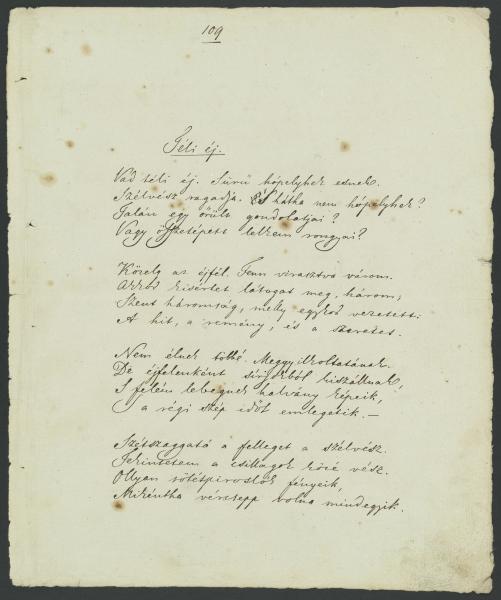 109
Téli éj.
Vad téli éj. Sürü hópelyhek esnek.
Szélvész ragadja. És hátha nem hópelyhek?
Talán egy őrült gondolatjai?
Vagy összetépett lelkem rongyai?
Közelg az éjfél. Fenn virasztva várom.
Akkor kisértet látogat meg, három;
Szent háromság, melly egykor vezetett:
A hit, a remény, és a szeretet.
Nem élnek többé. Meggyilkoltatának.
De éjfelenként sirjokból kiszállnak,
S felém lebegnek halvány képeik,
S a régi szép időt emlegetik. —
Szétszaggatá a felleget a szélvész.
Tekintetem a csillagok közé vész.
Ollyan sötétpiroslók fényeik,
Mikéntha vércsepp volna mindegyik.